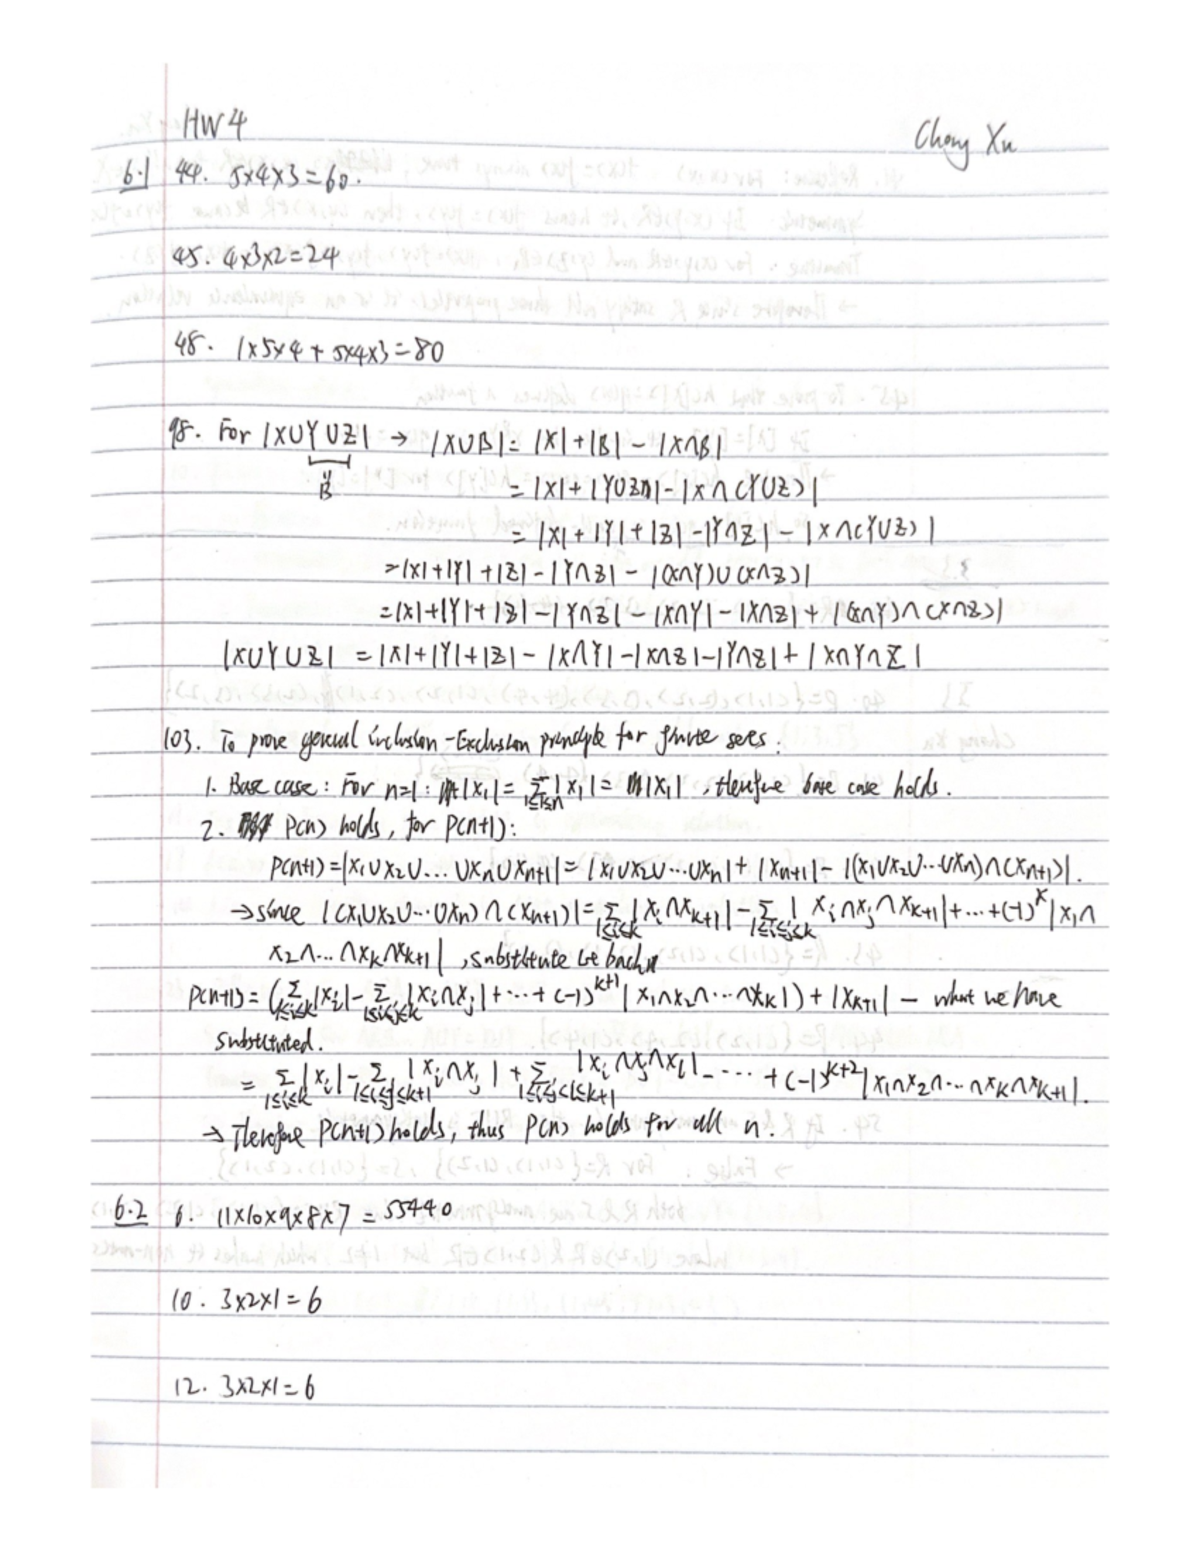 HW4
Chong Xu
6.1 44. 5x4x3=60.
45. 4x3x2=24
48. 1x5x4 + 5x4x3=80
98. For |X∪Y∪Z| → |X∪B| = |X|+|B| - |X∩B|
B
= |X|+|Y∪Z|-|X∩(Y∪Z)|
= |X|+|Y|+|Z|-|Y∩Z|-|X∩(Y∪Z)|
=|X|+|Y|+|Z|-|Y∩Z|-|(X∩Y)∪(X∩Z)|
=|X|+|Y|+|Z|-|Y∩Z|-|X∩Y|-|X∩Z|+|(X∩Y)∩(X∩Z)|
|X∪Y∪Z| =|X|+|Y|+|Z|-|X∩Y|-|X∩Z|-|Y∩Z|+|X∩Y∩Z|
103. To prove general inclusion-Exclusion principle for finite sets:
1. Base case: For n=1: |X₁|= Σ 1≤i≤n |Xi|= |X₁|, therefore base case holds.
2. P(n) holds, for P(n+1):
P(n+1)=|X₁∪X₂∪...∪Xn∪Xn+1|=|X₁∪X₂∪...∪Xn|+|Xn+1|-|(X₁∪X₂∪...∪Xn)∩(Xn+1)|.
→since |(X₁∪X₂∪...∪Xn)∩(Xn+1)|= Σ 1≤i≤k |Xi∩Xk+1| - Σ 1≤i≤j≤k |Xi∩Xj∩Xk+1|+...+(-1)^k |X₁∩
X₂∩...∩Xk∩Xk+1|, substitute it back
P(n+1)=(Σ 1≤i≤k |Xi|- Σ 1≤i≤j≤k |Xi∩Xj|+...+(-1)^k+1 |X₁∩X₂∩...∩Xk|)+|Xk+1| - what we have
substituted.
= Σ 1≤i≤k |Xi|- Σ 1≤i≤j≤k+1 |Xi∩Xj|+ Σ 1≤i≤j≤l≤k+1 |Xi∩Xj∩Xl|-...+(-1)^k+2 |X₁∩X₂∩...∩Xk∩Xk+1|.
→ Therefore P(n+1) holds, thus P(n) holds for all n.
6.2 6. 11x10x9x8x7 = 55440
10. 3x2x1=6
12. 3x2x1=6